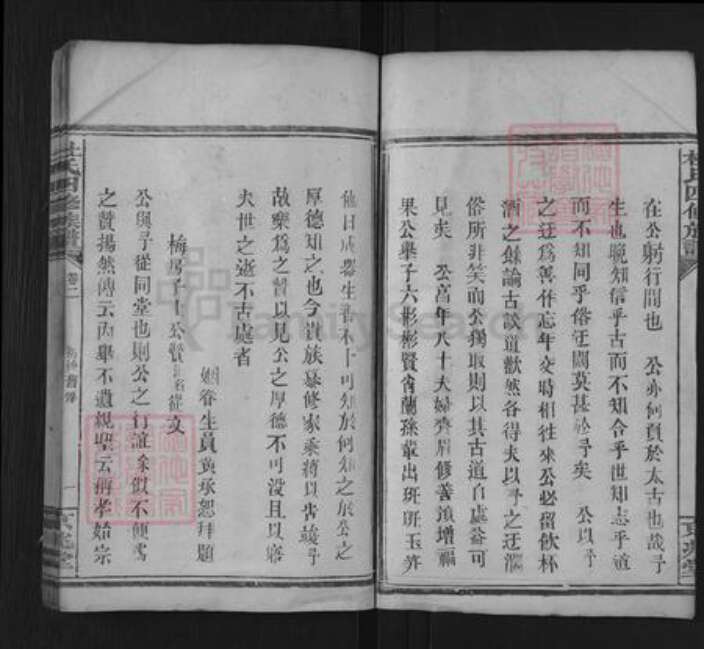 在公躬行間也　公亦何負於太古也哉予
生也晚知信乎古而不知合乎世知志乎道
而不知同乎俗迂闊莫甚於予矣　公以予
之迂爲善作忘年交時相徃來公必留飲杯
酒之餘論古談道歡然各得夫以予之迂濶
俗所非笑而公獨取則以其古道自處益可
見矣　公高年八十夫婦齊眉修善積增福
果公舉子六彬彬賢肖蘭孫輩出班班玉笋
他日成器生香不卜可知於何知之於公之
厚德知之也今貴族纂修家乘蔣以書諉予
故樂爲之贊以見公之厚德不可没且以寤
夫世之逝不古處者
姻眷生員黄承恕拜題
梅房子上公贊
公與予從同堂也則公之行誼似不便爲
之贊揚然傳云內舉不遺親聖云稱孝始宗
杜氏四修族譜
卷二
FamilySearch